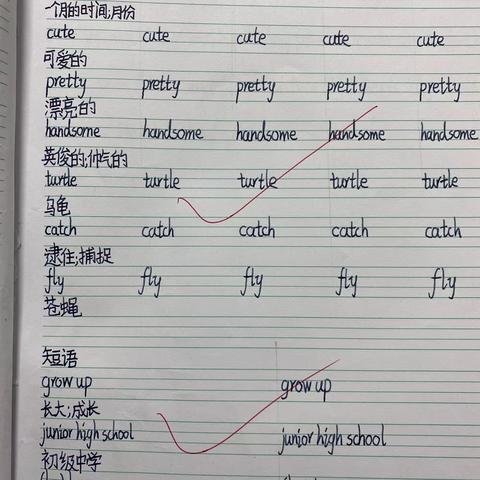 一个月的时间;月份
cute cute cute cute cute
可爱的
pretty pretty pretty pretty pretty
漂亮的
handsome handsome handsome handsome handsome
英俊的;帅气的
turtle turtle turtle turtle turtle
乌龟
catch catch catch catch catch
逮住;捕捉
fly fly fly fly fly
苍蝇
短语
grow up grow up
长大;成长
junior high school junior high school
初级中学